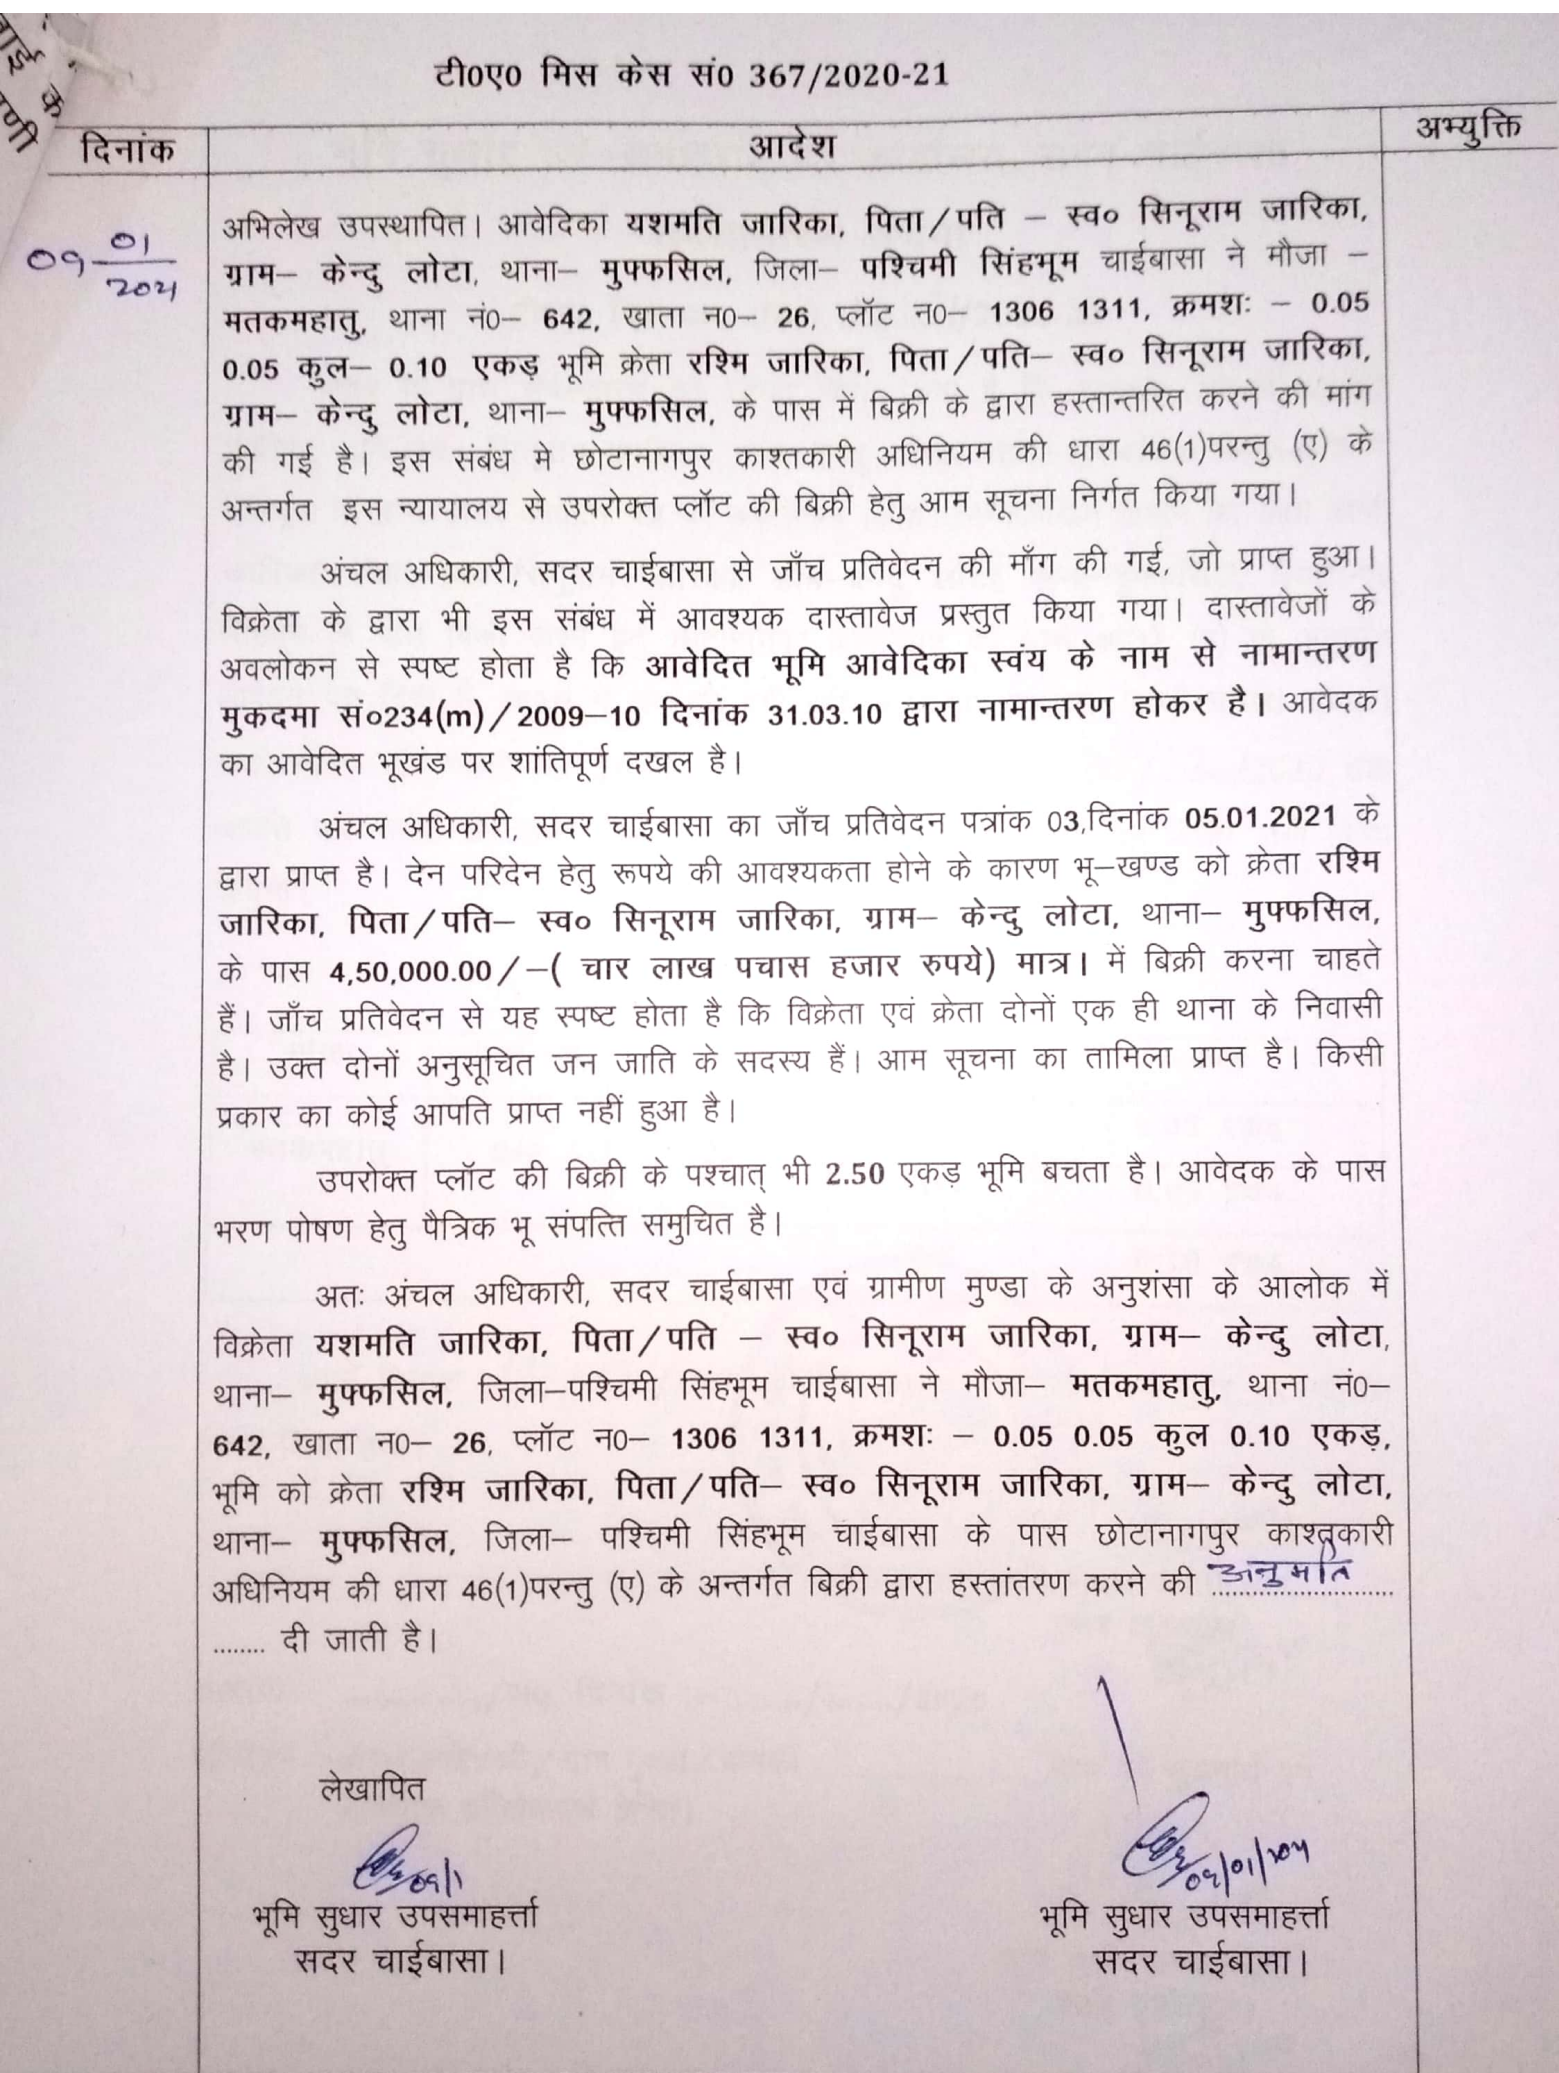 टी0ए0 मिस केस सं0 367/2020-21
दिनांक
आदेश
अभ्युक्ति
09 01/2021
अभिलेख उपस्थापित। आवेदिका यशमति जारिका, पिता/पति – स्व० सिनूराम जारिका,
ग्राम– केन्दु लोटा, थाना– मुफ्फसिल, जिला– पश्चिमी सिंहभूम चाईबासा ने मौजा –
मतकमहातु, थाना नं0– 642, खाता न0– 26, प्लॉट न0– 1306 1311, क्रमशः – 0.05
0.05 कुल– 0.10 एकड़ भूमि क्रेता रश्मि जारिका, पिता/पति– स्व० सिनूराम जारिका,
ग्राम– केन्दु लोटा, थाना– मुफ्फसिल, के पास में बिक्री के द्वारा हस्तान्तरित करने की मांग
की गई है। इस संबंध मे छोटानागपुर काश्तकारी अधिनियम की धारा 46(1)परन्तु (ए) के
अन्तर्गत इस न्यायालय से उपरोक्त प्लॉट की बिक्री हेतु आम सूचना निर्गत किया गया।
अंचल अधिकारी, सदर चाईबासा से जाँच प्रतिवेदन की माँग की गई, जो प्राप्त हुआ।
विक्रेता के द्वारा भी इस संबंध में आवश्यक दास्तावेज प्रस्तुत किया गया। दास्तावेजों के
अवलोकन से स्पष्ट होता है कि आवेदित भूमि आवेदिका स्वंय के नाम से नामान्तरण
मुकदमा सं०234(m)/2009–10 दिनांक 31.03.10 द्वारा नामान्तरण होकर है। आवेदक
का आवेदित भूखंड पर शांतिपूर्ण दखल है।
अंचल अधिकारी, सदर चाईबासा का जाँच प्रतिवेदन पत्रांक 03,दिनांक 05.01.2021 के
द्वारा प्राप्त है। देन परिदेन हेतु रूपये की आवश्यकता होने के कारण भू–खण्ड को क्रेता रश्मि
जारिका, पिता/पति– स्व० सिनूराम जारिका, ग्राम– केन्दु लोटा, थाना– मुफ्फसिल,
के पास 4,50,000.00/–( चार लाख पचास हजार रुपये) मात्र। में बिक्री करना चाहते
हैं। जाँच प्रतिवेदन से यह स्पष्ट होता है कि विक्रेता एवं क्रेता दोनों एक ही थाना के निवासी
है। उक्त दोनों अनुसूचित जन जाति के सदस्य हैं। आम सूचना का तामिला प्राप्त है। किसी
प्रकार का कोई आपति प्राप्त नहीं हुआ है।
उपरोक्त प्लॉट की बिक्री के पश्चात् भी 2.50 एकड़ भूमि बचता है। आवेदक के पास
भरण पोषण हेतु पैत्रिक भू संपत्ति समुचित है।
अतः अंचल अधिकारी, सदर चाईबासा एवं ग्रामीण मुण्डा के अनुशंसा के आलोक में
विक्रेता यशमति जारिका, पिता/पति – स्व० सिनूराम जारिका, ग्राम– केन्दु लोटा,
थाना– मुफ्फसिल, जिला–पश्चिमी सिंहभूम चाईबासा ने मौजा– मतकमहातु, थाना नं0–
642, खाता न0– 26, प्लॉट न0– 1306 1311, क्रमशः – 0.05 0.05 कुल 0.10 एकड़,
भूमि को क्रेता रश्मि जारिका, पिता/पति– स्व० सिनूराम जारिका, ग्राम– केन्दु लोटा,
थाना– मुफ्फसिल, जिला– पश्चिमी सिंहभूम चाईबासा के पास छोटानागपुर काश्तकारी
अधिनियम की धारा 46(1)परन्तु (ए) के अन्तर्गत बिक्री द्वारा हस्तांतरण करने की अनुमति
........ दी जाती है।
लेखापित
09/1
09/01/2021
भूमि सुधार उपसमाहर्त्ता
भूमि सुधार उपसमाहर्त्ता
सदर चाईबासा।
सदर चाईबासा।